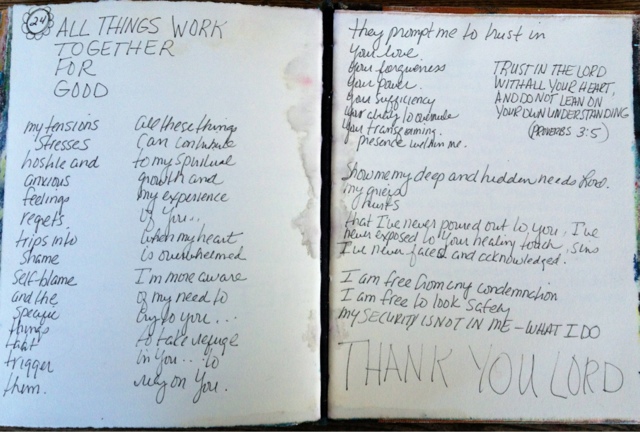 24
ALL THINGS WORK
TOGETHER
FOR
GOOD
my tensions
stresses
hostile and
anxious
feelings
regrets
trips into
shame
self-blame
and the
specific
things
that
trigger
them.
all these things
can contribute
to my spiritual
growth and
my experience
of you...
when my heart
is overwhelmed
I'm more aware
of my need to
cry to you...
to take refuge
in You... to
rely on You.
they prompt me to trust in
Your love
Your forgiveness
Your power
Your sufficiency
Your ability to overrule
Your transforming
presence within me.
TRUST IN THE LORD
WITH ALL YOUR HEART,
AND DO NOT LEAN ON
YOUR OWN UNDERSTANDING
(PROVERBS 3:5)
Show me my deep and hidden needs Lord.
my griefs
hurts
that I've never poured out to you, I've
never exposed to your healing touch, sins
I've never faced and acknowledged.
I am free from any condemnation
I am free to look safely
MY SECURITY IS NOT IN ME - WHAT I DO
THANK YOU LORD